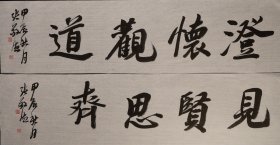 澄懷觀道
甲辰秋月
見賢思齊
甲辰秋月